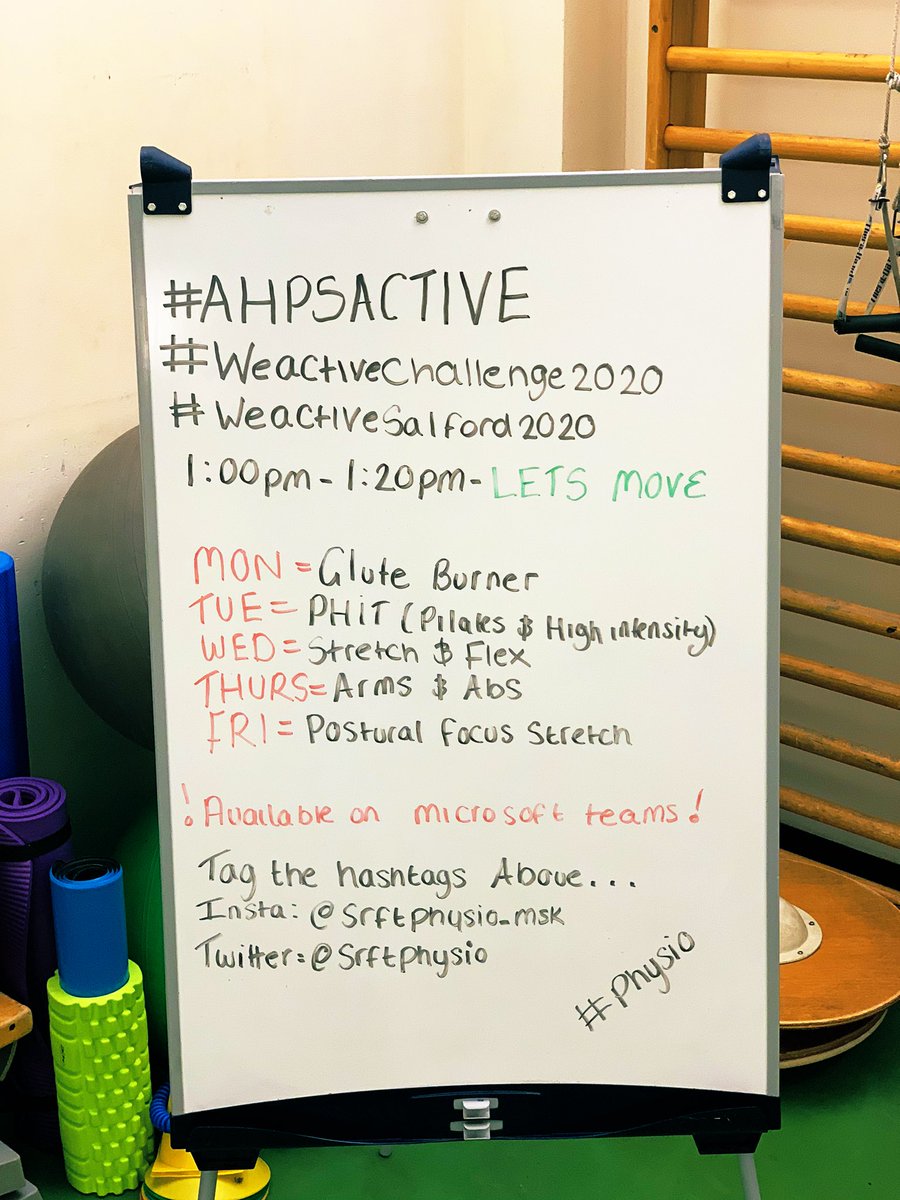 #AHPSACTIVE
#WeactiveChallenge2020
#WeactiveSalford2020
1:00pm - 1:20pm - LETS MOVE
MON = Glute Burner
TUE = PHiT (Pilates & High intensity)
WED = Stretch & Flex
THURS = Arms & Abs
FRI = Postural Focus Stretch
! Available on microsoft teams !
Tag the hashtags Above...
Insta: @Srftphysio_msk
Twitter: @Srftphysio
#Physio